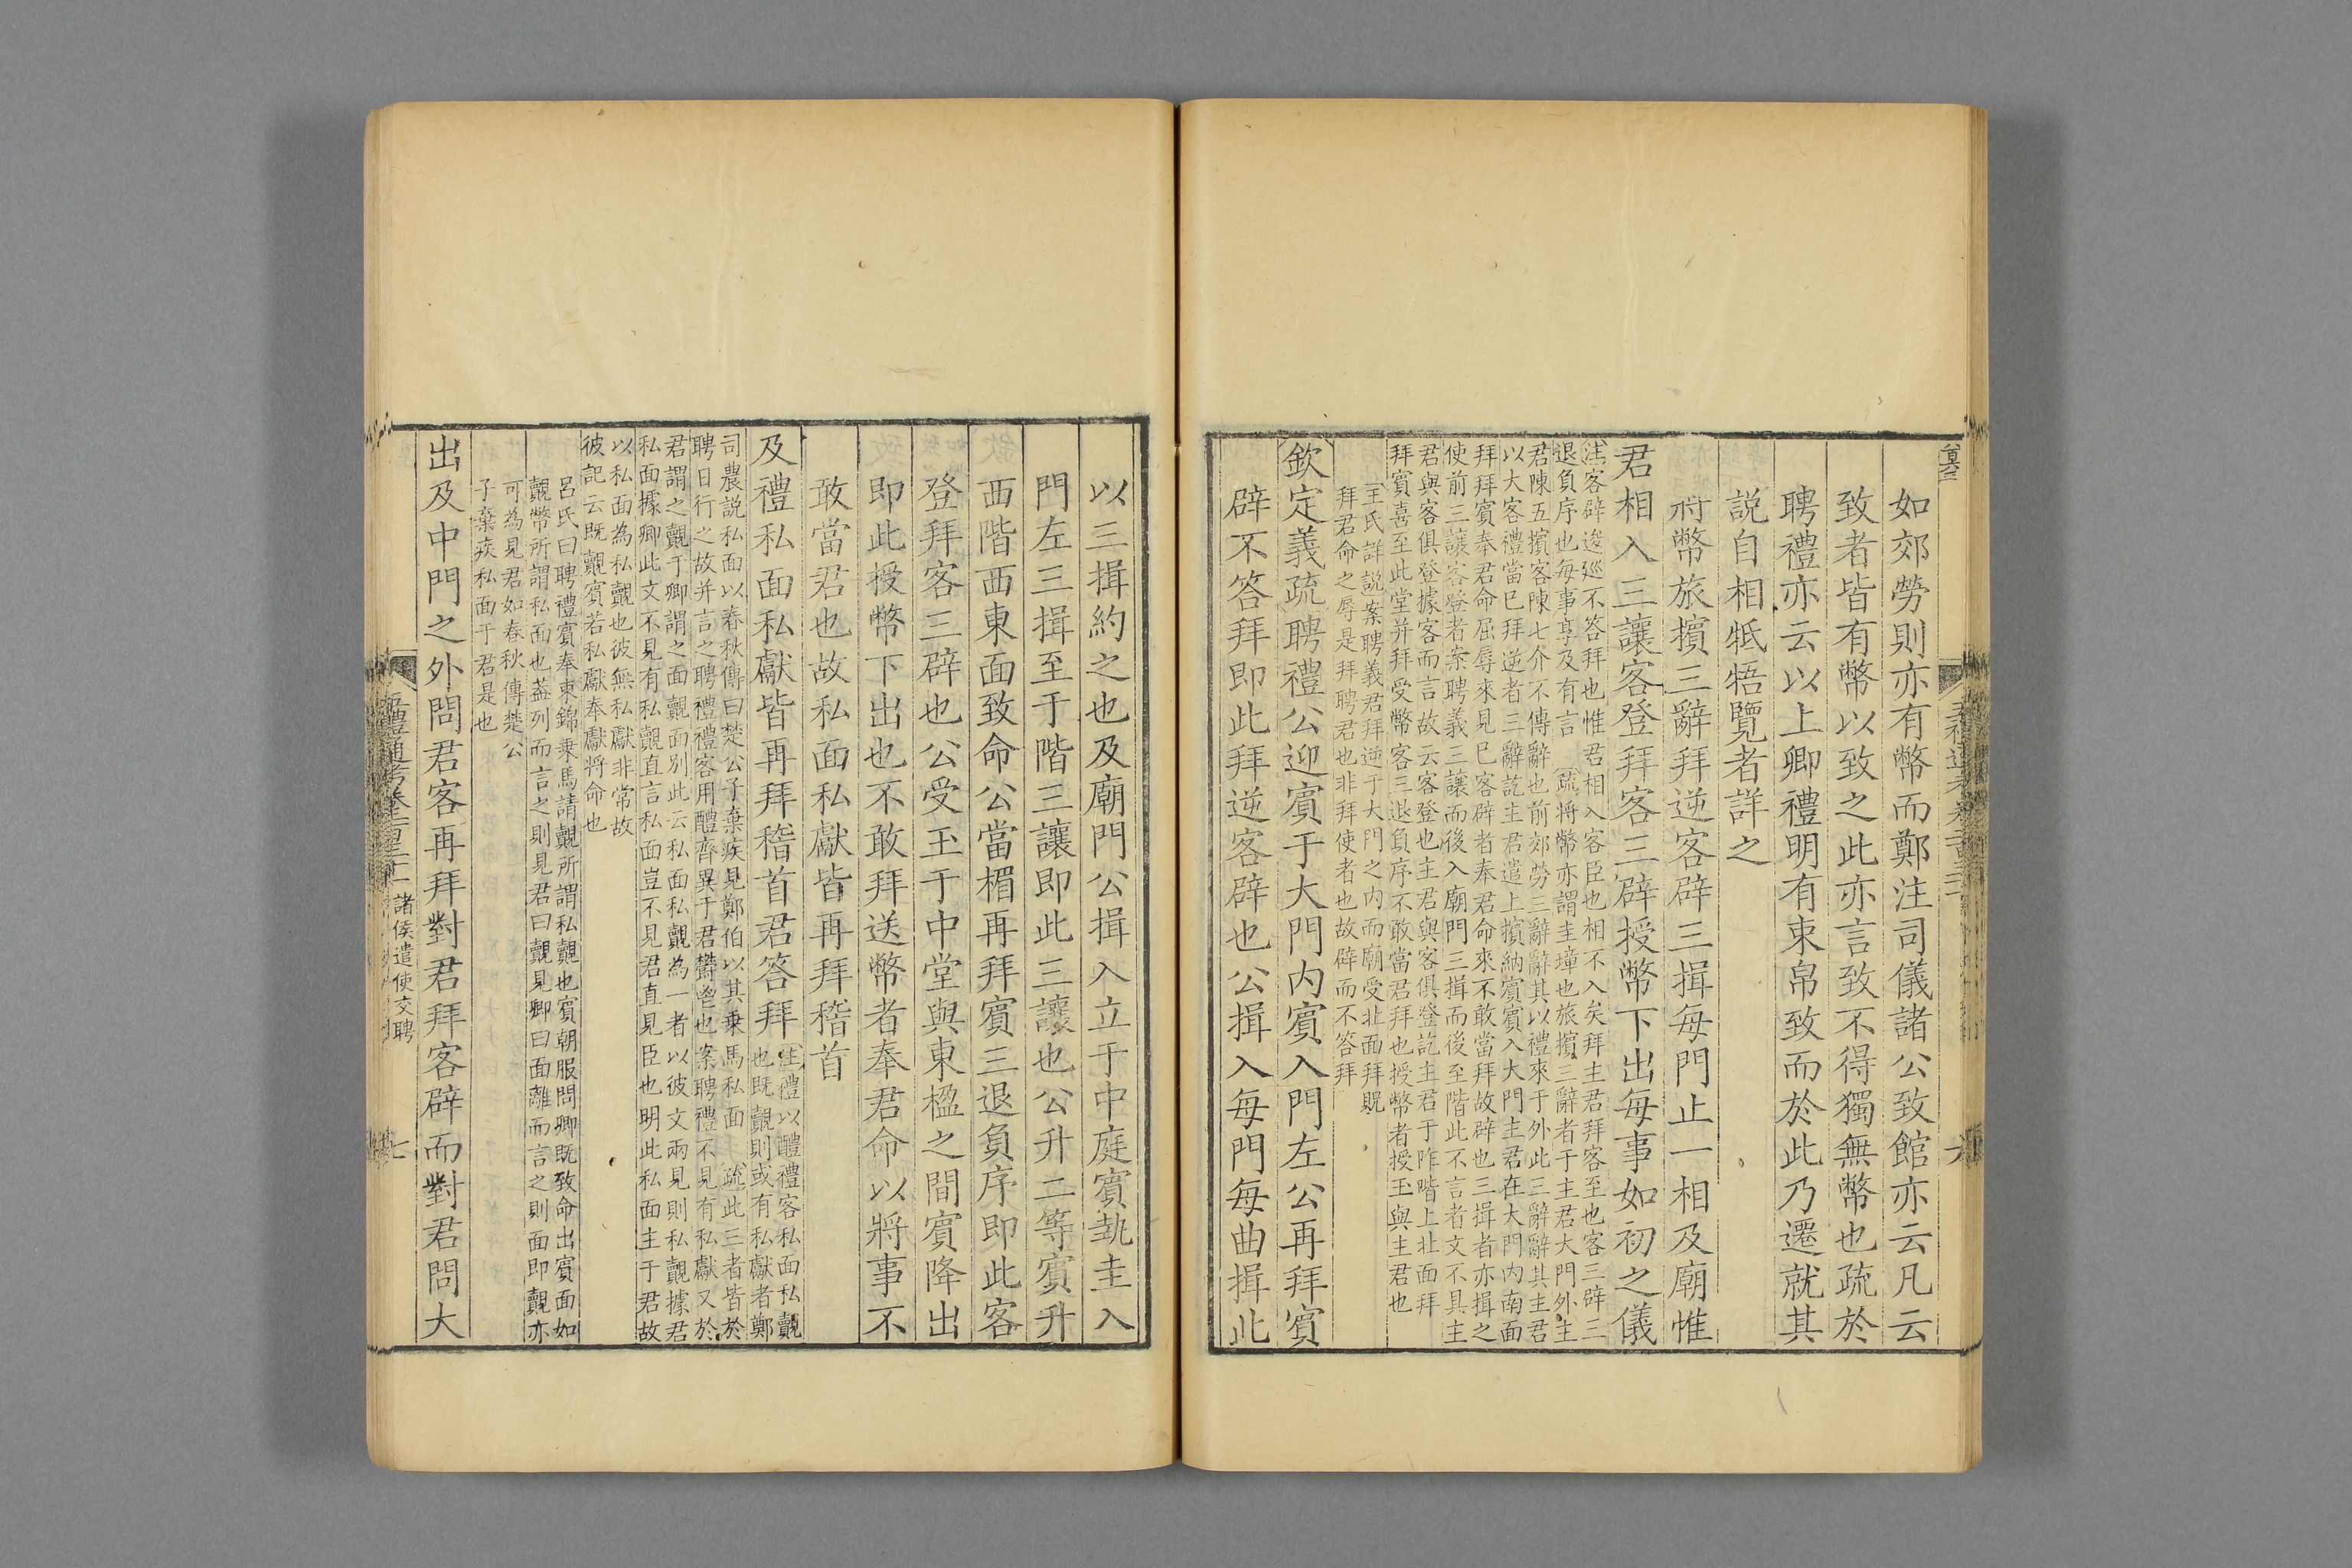 如郊勞則亦有幣而鄭注司儀諸公致館亦云凡云
致者皆有幣以致之此亦言致不得獨無幣也疏於
聘禮亦云以上卿禮明有束帛致而於此乃遷就其
說自相牴牾覽者詳之
將幣旅擯三辭拜逆客辟三揖每門止一相及廟惟
君相入三讓客登拜客三辟授幣下出每事如初之儀
注客辟逡巡不答拜也惟君相入客臣也相不入矣拜主君拜客至也客三辟三
退負序也每事享及有言 疏將幣亦謂圭璋也旅擯三辭者于主君大門外主
君陳五擯客陳七介不傳辭也前郊勞三辭辭其以禮來于外此三辭辭其主君
以大客禮當巳拜逆者三辭訖主君遣上擯納賓賓入大門主君在大門内南面
拜拜賓奉君命屈辱來見巳客辟者奉君命來不敢當拜故辟也三揖者亦揖之
使前三讓客登者案聘義三讓而後入廟門三揖而後至階此不言者文不具主
君與客俱登據客而言故云客登也主君與客俱登訖主君于阼階上北面拜
拜賓喜至此堂并拜受幣客三退負序不敢當君拜也授幣者授玉與主君也
王氏詳說案聘義君拜逆于大門之内而廟受北面拜貺
拜君命之辱是拜聘君也非拜使者也故辟而不答拜
欽定義疏聘禮公迎賓于大門内賓入門左公再拜賓
辟不答拜即此拜逆客辟也公揖入每門每曲揖此
以三揖約之也及廟門公揖入立于中庭賓執圭入
門左三揖至于階三讓即此三讓也公升二等賓升
西階西東面致命公當楣再拜賓三退負序即此客
登拜客三辟也公受玉于中堂與東楹之間賓降出
即此授幣下出也不敢拜送幣者奉君命以將事不
敢當君也故私面私獻皆再拜稽首
及禮私面私獻皆再拜稽首君答拜
注禮以醴禮客私面私覿
也既覿則或有私獻者鄭
司農說私面以春秋傳曰楚公子棄疾見鄭伯以其乘馬私面 疏此三者皆於
聘日行之故并言之聘禮禮客用醴齊異于君鬱鬯也案聘禮不見有私獻又於
君謂之覿于卿謂之面覿面別此云私面私覿為一者以彼文兩見則私覿據君
私面據卿此文不見有私覿直言私面豈不見君直見臣也明此私面主于君故
以私面為私覿也彼無私獻非常故
彼記云既覿賓若私獻奉獻將命也
呂氏曰聘禮賓奉束錦乘馬請覿所謂私覿也賓朝服問卿既致命出賓面如
覿幣所謂私面也葢列而言之則見君曰覿見卿曰面離而言之則面即覿亦
可為見君如春秋傳楚公
子棄疾私面于君是也
出及中門之外問君客再拜對君拜客辟而對君問大
諸侯遣使交聘
七